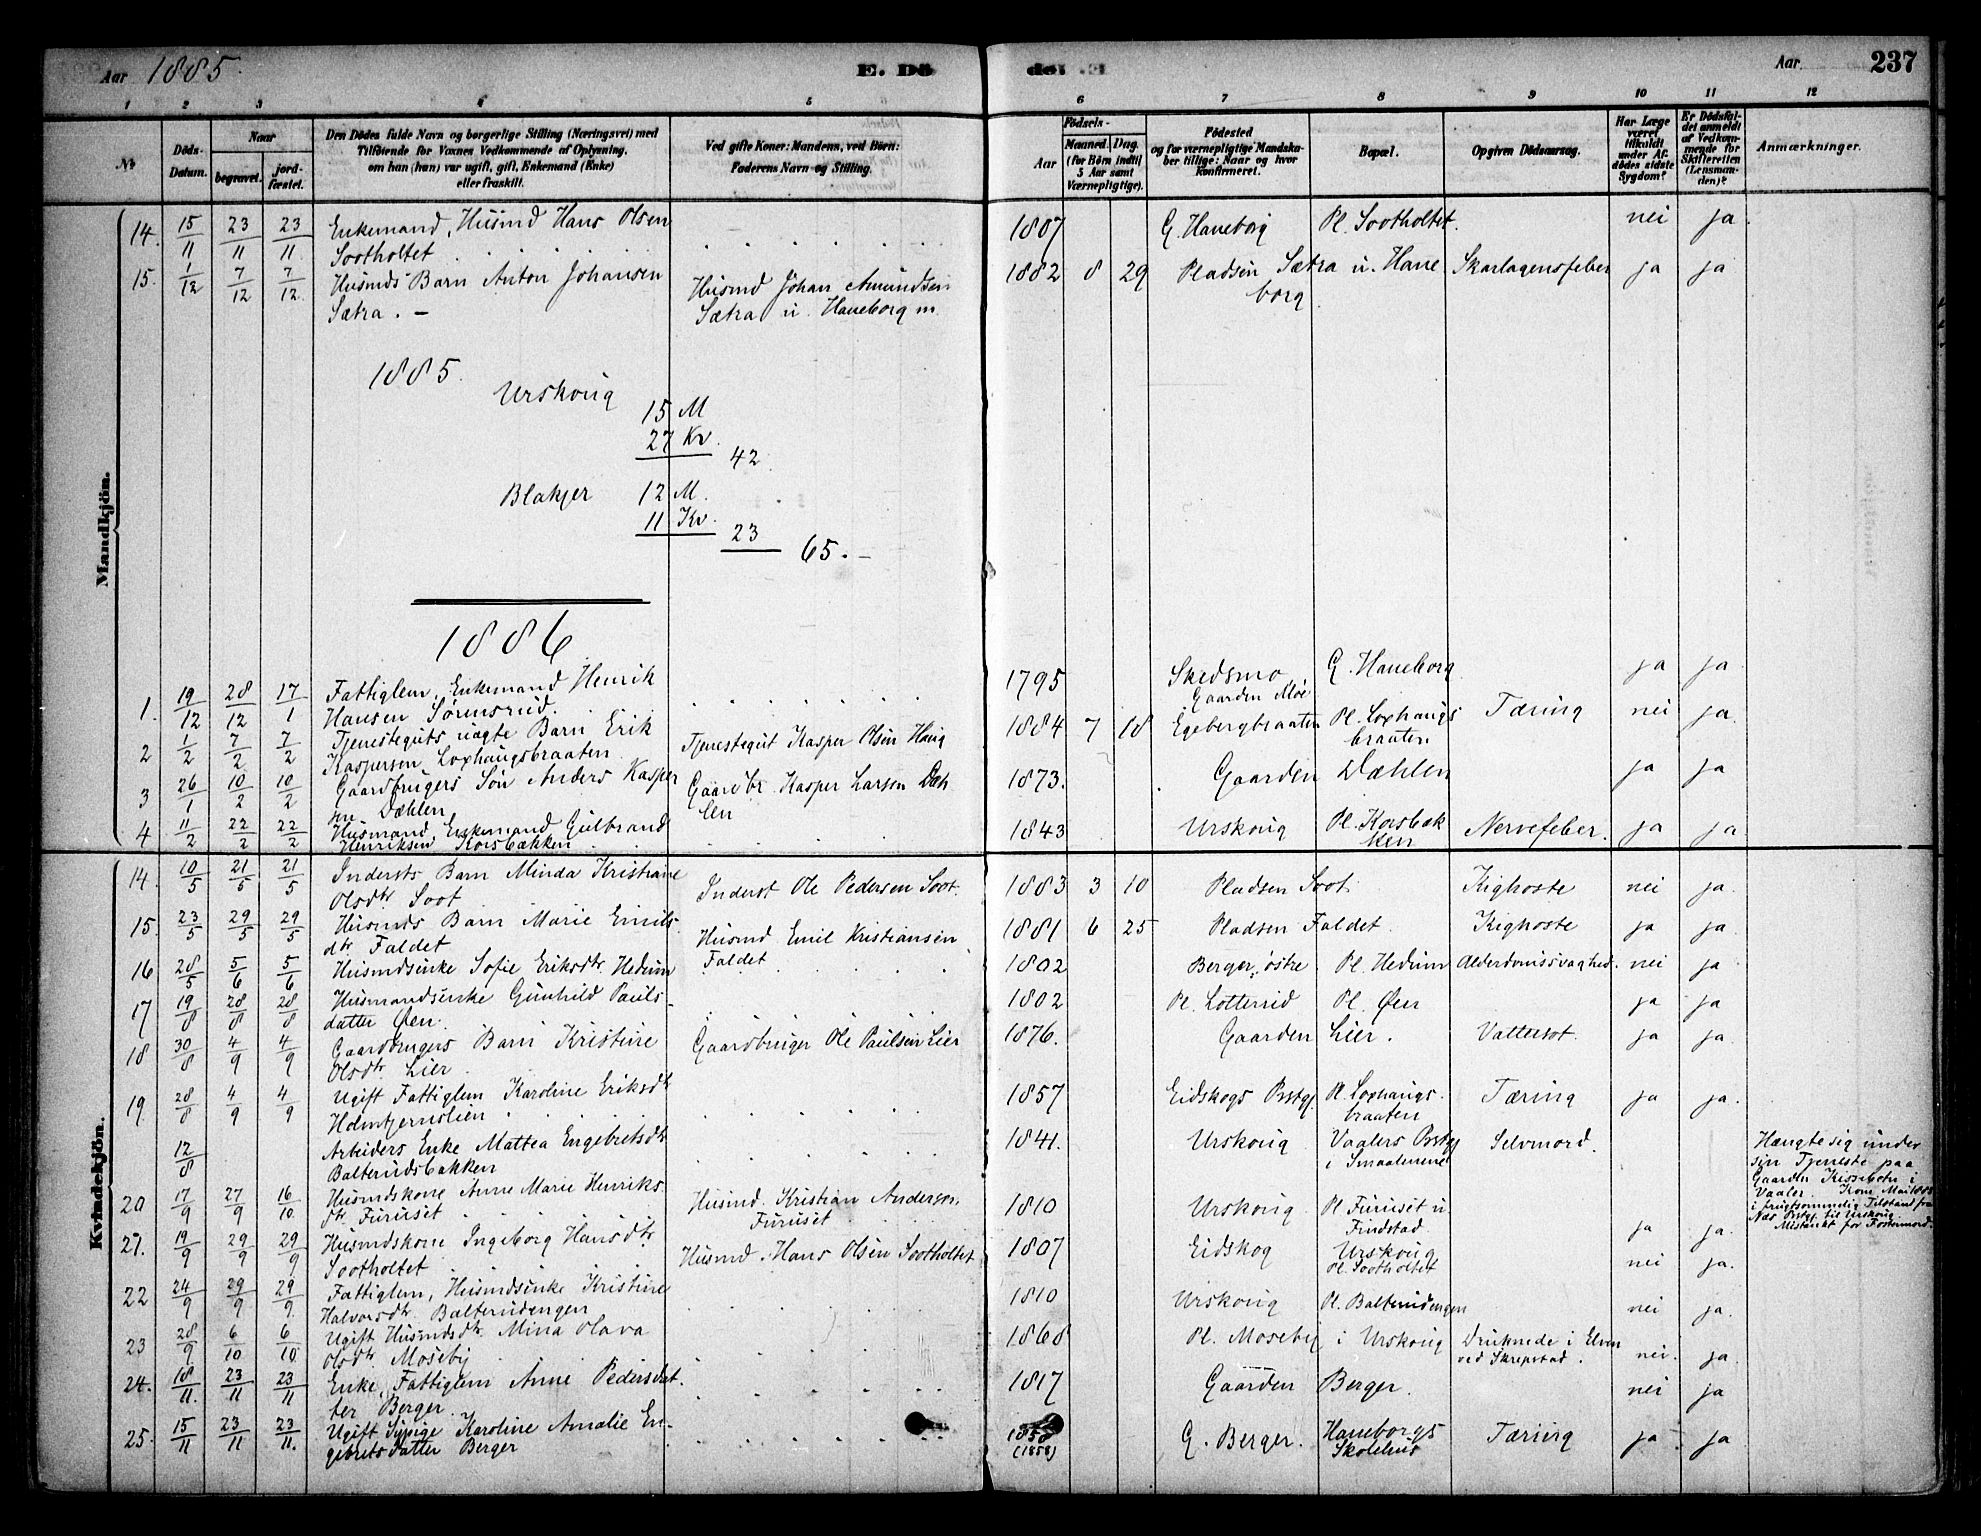 Aar 1885. E. Dö
1 2 3 4 5
No Döds-Datum. Naar begravet. jordfæstet. Den Dödes fulde Navn og borgerlige Stilling (Næringsvei) med
Tilföiende för Voxnes Vedkommende af Oplysning,
om han (hun) var ugift, gift, Enkemand (Enke)
eller fraskilt. Ved gifte Koner: Mandens, ved Börn:
Faderens Navn og Stilling.
de. E. Aar. 237
6 7 8 9 10 11 12
Födsels-
Aar Maaned. Dag.
(for Börn indtil
5 Aar samt
Værnepligtige). Födested
og for værnepligtige Mandskaber tillige: Naar og hvor
konfirmeret. Bopæl. Opgiven Dödsaarsag. Har Læge
været
tilkaldt
under Afdödes sidste
Sygdom? Er Dödsfaldet anmeldt
af Vedkommende for
Skifteretten
(Lensmanden)? Anmærkninger.
Mandkjön.
14. 15/11 23/11 23/11 Enkemand, Husmd Hans Olsen
Sootholtet 1807 G. Haneborg Pl. Sootholtet. nei ja.
15. 1/12 7/12 7/12 Husmds Barn Anton Johansen
Sætra. — Husmd Johan Amundsen
Sætra u. Haneborg m. 1882 8 29 Pladsen Sætra u. Hane
borg Skarlagensfeber ja ja
1885.
Urskoug
15 M
27 Kv.
42
Blakjer 12 M.
11 Kv.
23
65. —
1886
1. 19/12 28/12 17/1 Fattiglem, Enkemand Henrik
Hansen Sørensrud. 1795 Skedsmo
Gaarden Moe G. Haneborg ja ja
2 1/2 7/2 7/2 Tjenesteguts uægte Barn Erik
Kaspersen Loxhaugsbraaten Tjenestegut Kasper Olsen Haug 1884 7 18 Egebergbraaten Pl. Loxhaugs
braaten Tæring nei ja.
3 26/1 10/2 10/2 Gaardbrugers Søn Anders Kasper
sen Dæhlen Gaardbr. Kasper Larsen Dæh
len 1873. Gaarden Dæhlen ja ja
4 11/2 22/2 22/2 Husmand, Enkemand Gulbrand
Henriksen Korsbækken 1843 Urskoug Pl. Korsbæk
ken Nervefeber. ja ja
Kvindekjön.
14. 10/5 21/5 21/5 Indersts Barn Minda Kristiane
Olsdtr Soot Inderst Ole Pedersen Soot. 1883 3 10 Pladsen Soot. Kighoste nei ja.
15. 23/5 29/5 29/5 Husmds Barn Marie Emils-
dtr Faldet Husmd Emil Kristiansen
Faldet 1881 6 25 Pladsen Faldet. Kighoste ja ja.
16 28/5 5/6 5/6 Husmdsenke Sofie Eriksdtr Hedum 1802 Berger, østre Pl. Hedum Alderdomssvaghed. nei ja
17 19/8 28/8 28/8 Husmandsenke Gunhild Pauls-
datter Øen. 1802 Pl. Lotterud Pl. Øen ja ja
18 30/8 4/9 4/9 Gaardbrugers Barn Kristine
Olsdtr Lier Gaardbruger Ole Paulsen Lier 1876. Gaarden Lier. Vattersot. ja ja.
19. 28/8 4/9 4/9 Ugift Fattiglem Karoline Eriksdtr
Holmtjernslien 1857 Eidskogs Prstgj. Pl. Loxhaugs-
braaten Tæring ja ja.
12/8 Arbeiders Enke Mattea Engebretsdtr
Balterudsbakken 1841. Urskoug Vaalers Prstgj
i Smaalenene Selvmord. Hængte sig under
sin Tjeneste paa
Gaarden i
Vaaler. Kom Mai 1885
i frugtsommelig Tilstand fra
Næs Prstgj. til Urskoug.
Mistænkt for Fostermord.
20 17/9 27/9 16/10 Husmdskone Anne Marie Henriks-
dtr Furuset Husmd Kristian Andersen
Furuset 1810 Urskoug Pl. Furuset u
Findstad ja ja.
21. 19/9 29/9 29/9 Husmdskone Ingeborg Hansdtr
Sootholtet Husmd. Hans Olsen Sootholtet 1807 Eidskog Urskoug
Pl. Sootholtet nei ja.
22 24/9 29/9 29/9 Fattiglem, Husmdsenke Kristine
Halvorsdtr Balterudengen 1810 Urskoug Pl. Balterudengen nei ja.
23 28/9 6/10 6/10 Ugift Husmdsdtr. Mina Olava
Olsdtr Moseby 1868 Pl. Moseby i Urskoug Druknede i Elven
ved Skrepstad. nei. ja.
24. 18/11. 23/11 23/11 Enke, Fattiglem Anne Pedersdat-
ter Berger. 1817 Gaarden Berger. nei ja
25. 15/11 23/11 23/11. Ugift Sypige Karoline Amalie En-
gebretsdatter Berger 1858
(1858) G. Berger. Haneborgs
Skolehus Tæring ja ja